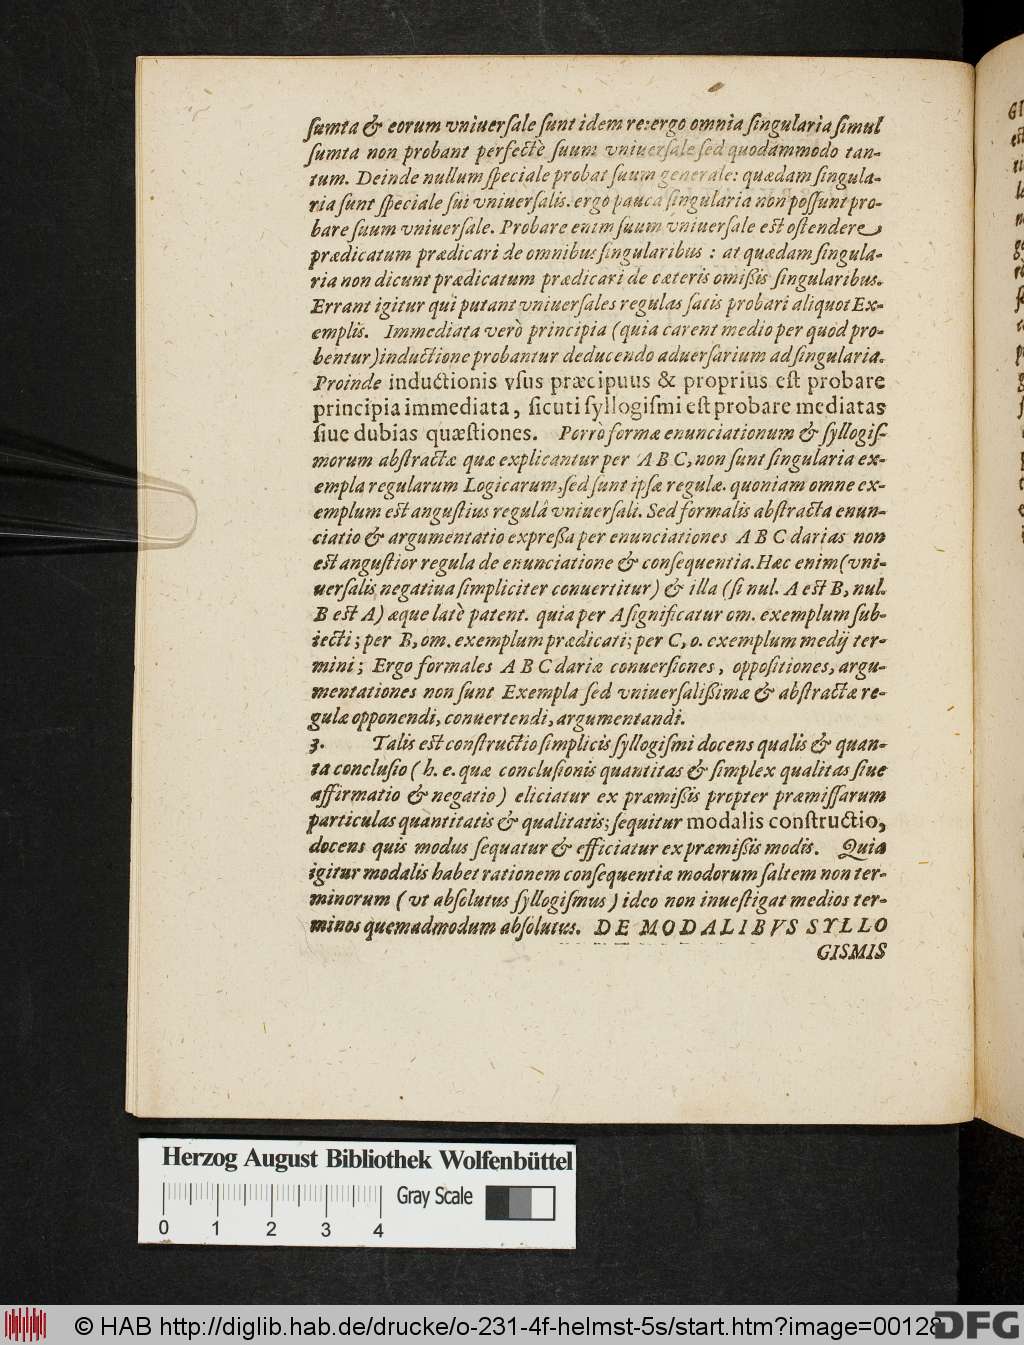 ſumta & eorum vniuerſale ſunt idem re: ergo omnia ſingularia ſimul
ſumta non probant perfectè ſuum vniuerſale ſed quodammodo tan-
tum. Deinde nullum ſpeciale probat ſuum generale: quædam ſingula-
ria ſunt ſpeciale ſui vniuerſalis. ergo pauca ſingularia non poſſunt pro-
bare ſuum vniuerſale. Probare enim ſuum vniuerſale est oſtendere
prædicatum prædicari de omnibus ſingularibus : at quædam ſingula-
ria non dicunt prædicatum prædicari de cæteris omißis ſingularibus.
Errant igitur qui putant vniuerſales regulas ſatis probari aliquot Ex-
emplis. Immediata verò principia (quia carent medio per quòd pro-
bentur) inductione probantur deducendo aduerſarium ad ſingularia.
Proinde inductionis vſus præcipuus & proprius eſt probare
principia immediata, ſicuti ſyllogiſmi eſt probare mediatas
ſiue dubias quæſtiones. Porrò formæ enunciationum & ſyllogiſ-
morum abſtractæ quæ explicantur per A B C, non ſunt ſingularia ex-
empla regularum Logicarum, ſed ſunt ipſæ regulæ. quoniam omne ex-
emplum est anguſtius regulâ vniuerſali. Sed formalis abſtracta enun-
ciatio & argumentatio expreßa per enunciationes A B C darias non
est anguſtior regula de enunciatione & conſequentia. Hæc enim (vni-
uerſalis negatiua ſimpliciter conuertitur) & illa (ſi nul. A est B, nul.
B est A) æque latè patent. quia per A ſignificatur om. exemplum ſub-
iecti; per B, om. exemplum prædicati; per C, o. exemplum medij ter-
mini; Ergo formales A B C dariæ conuerſiones, oppoſitiones, argu-
mentationes non ſunt Exempla ſed vniuerſalißimæ & abſtractæ re-
gulæ opponendi, conuertendi, argumentandi.
3. Talis est conſtructio ſimplicis ſyllogiſmi docens qualis & quan-
ta concluſio (h. e. quæ concluſionis quantitas & ſimplex qualitas ſiue
affirmatio & negatio) eliciatur ex præmißis propter præmiſſarum
particulas quantitatis & qualitatis; ſequitur modalis conſtructio,
docens quis modus ſequatur & efficiatur ex præmißis modis. Quia
igitur modalis habet rationem conſequentiæ modorum ſaltem non ter-
minorum (vt abſolutus ſyllogiſmus) ideo non inueſtigat medios ter-
minos quemadmodum abſolutus. DE MODALIBVS SYLLO
GISMIS
Herzog August Bibliothek Wolfenbüttel
Gray Scale
0 1 2 3 4
© HAB http://diglib.hab.de/drucke/o-231-4f-helmst-5s/start.htm?image=00128
DFG